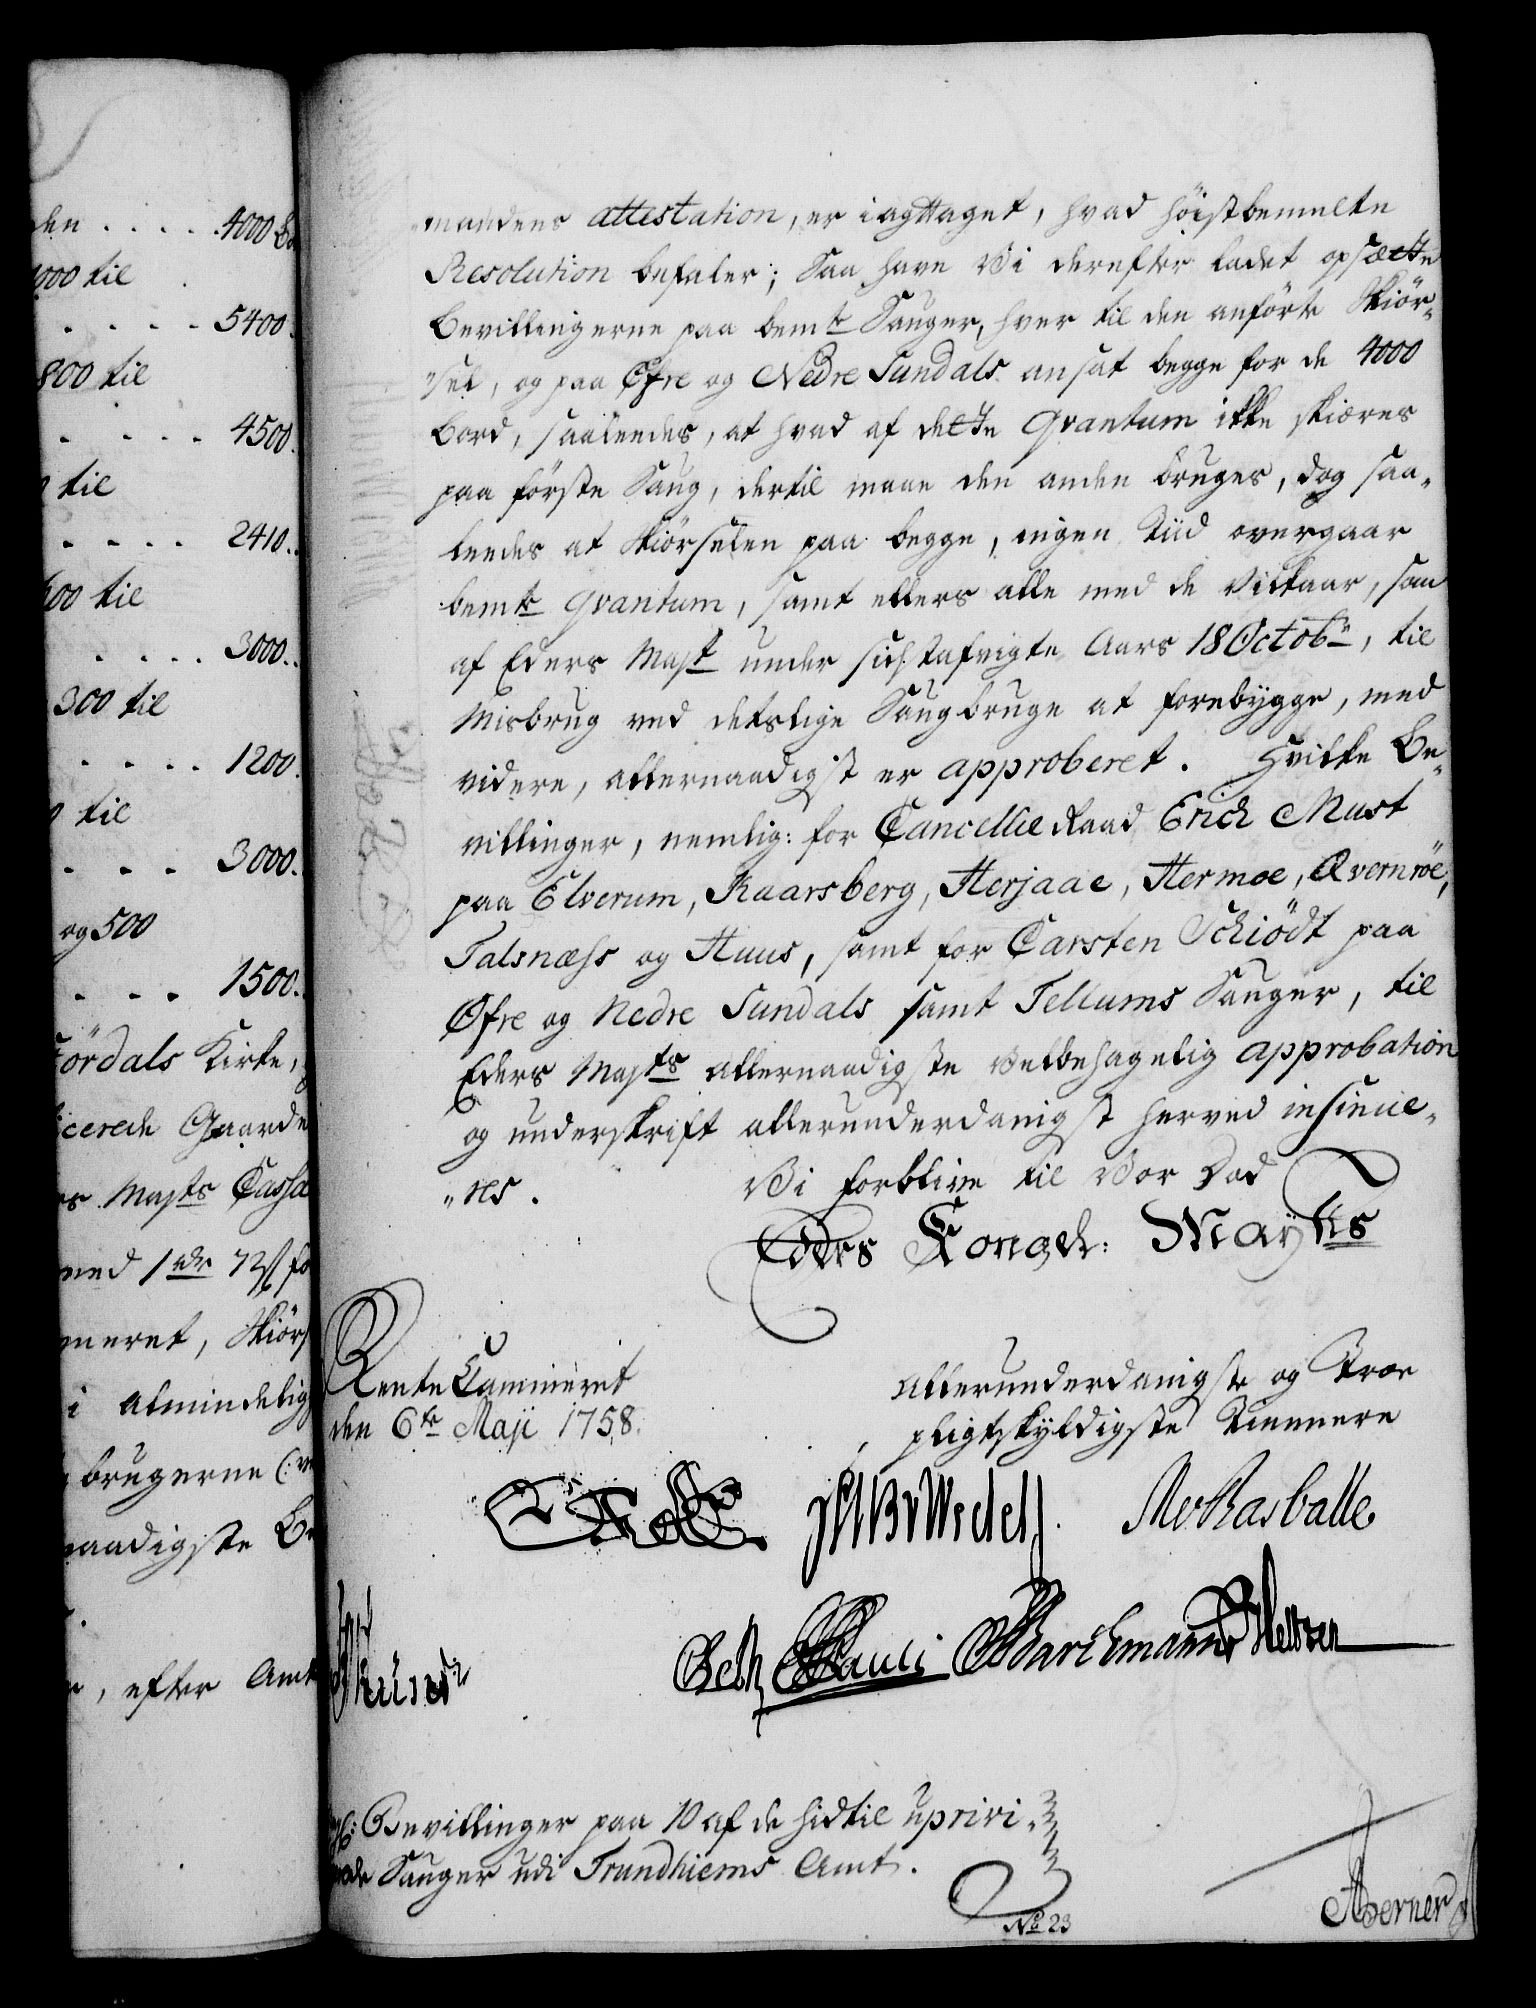 den . . . . . 4000 Bo
1000 til
. . . . 5400.
800 til
. . . . 4500.
til
. . . . 2410..
til
. . . . 3000..
300 til
. . . . 1200.
til
. . . 3000.
og 500
. . . 1500..
ördals Kirke,
cerede Gaarde
rs Majts Cassa
med 1 rdr 72 ſs fo
meret, Skiörs
i almindelig
brugerne (:
naadigste Be
, efter Amt
mandens attestation, er iagttaget, hvad höistbemelte
Resolution befaler; Saa have Vi derefter ladet opsætte
Bevillingerne paa bemte Sauger, hver til den anförte Skiör-
sel, og paa Öfre og Nedre Sundals ansat begge for de 4000
Bord, saaleedes, at hvad af dette Qvantum ikke skiæres
paa förste Saug, dertil maae den anden bruges, dog saa-
leedes at Skiörselen paa begge, ingen Tiid overgaar
bemte qvantum, samt ellers alle med de Vilkaar, som
af Eders Majt under sidstafvigte Aars 18 Octobr, til
Misbrug ved deslige Saugbruge at forebygge, med
videre, allernaadigst er approberet. Hvilke Be-
villinger, nemlig: for Cancellie Raad Erich Must
paa Elverum, Kaarsberg, Herjaae, Hermoe, Qvernröe,
Talsnæss og Huus, samt for Carsten Schiödt paa
Öfre og Nedre Sundals samt Tellums Sauger, til
Eders Majts allernaadigste Velbehagelig approbation
og underskrift allerunderdanigst herved insinue-
res. Vi forblive til Vor Död
Eders Kongel: Mayts
Rente Cammeret
den 6te Maji 1758.
allerunderdanigste og Troe
pligtskyldigste Tiennere
Wedel
Rasballe
Beth Pauli Barchmann Heltzen
Bevillinger paa 10 af de hidtil uprivi-
Sauger udi Trundhiems Amt.
No 23
Berner